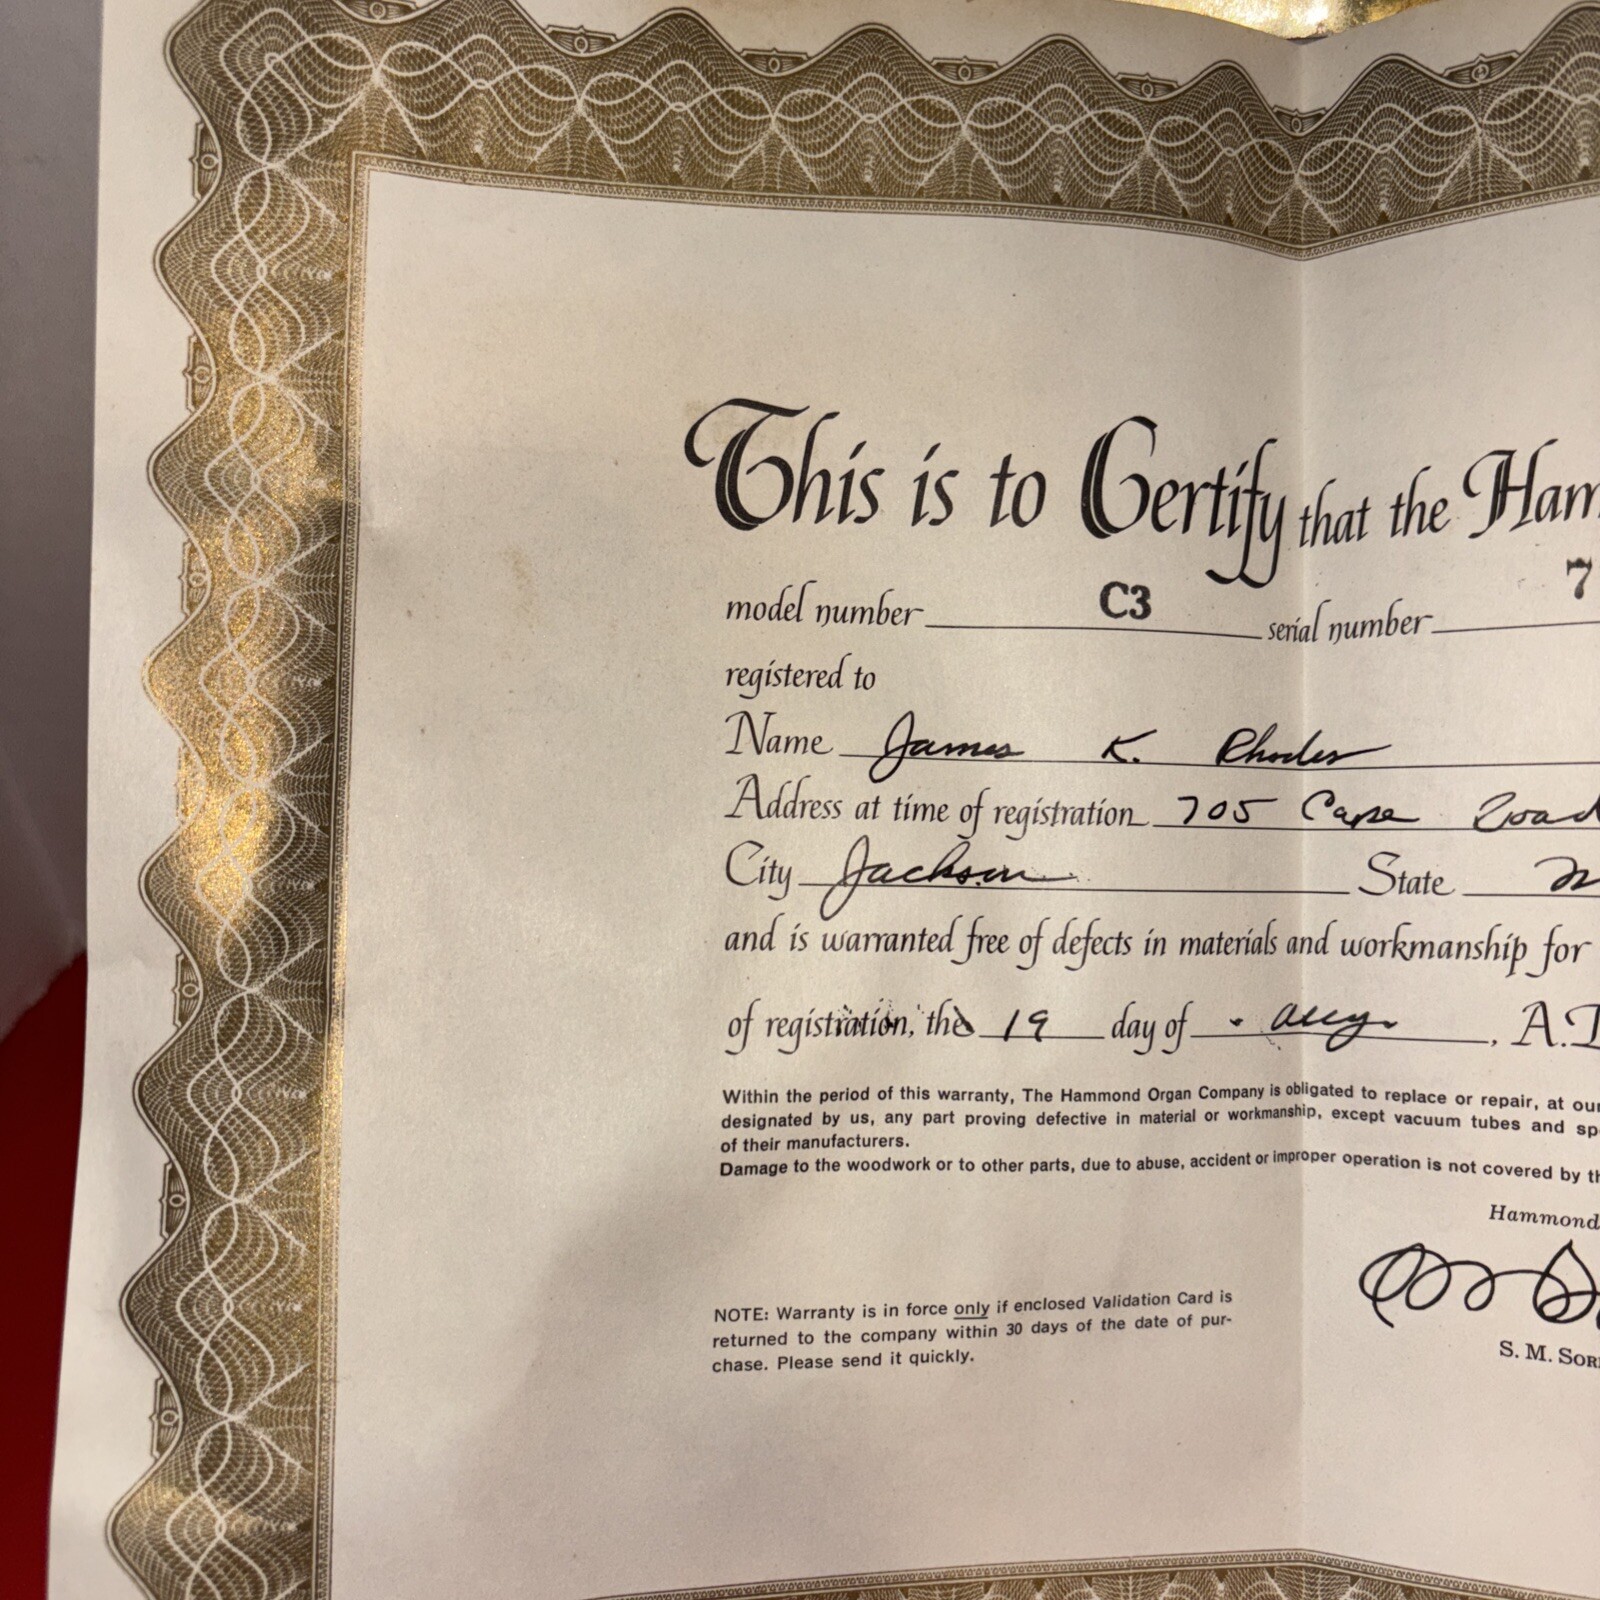 This is to Certify that the Ham
model number C3 serial number 7
registered to
Name James K. Rhodes
Address at time of registration 705 Cape Road
City Jackson State M
and is warranted free of defects in materials and workmanship for
of registration, the 19 day of Aug. , A.D
Within the period of this warranty, The Hammond Organ Company is obligated to replace or repair, at our
designated by us, any part proving defective in material or workmanship, except vacuum tubes and sp
of their manufacturers.
Damage to the woodwork or to other parts, due to abuse, accident or improper operation is not covered by th
Hammond
S. M. SOR
NOTE: Warranty is in force only if enclosed Validation Card is
returned to the company within 30 days of the date of pur-
chase. Please send it quickly.